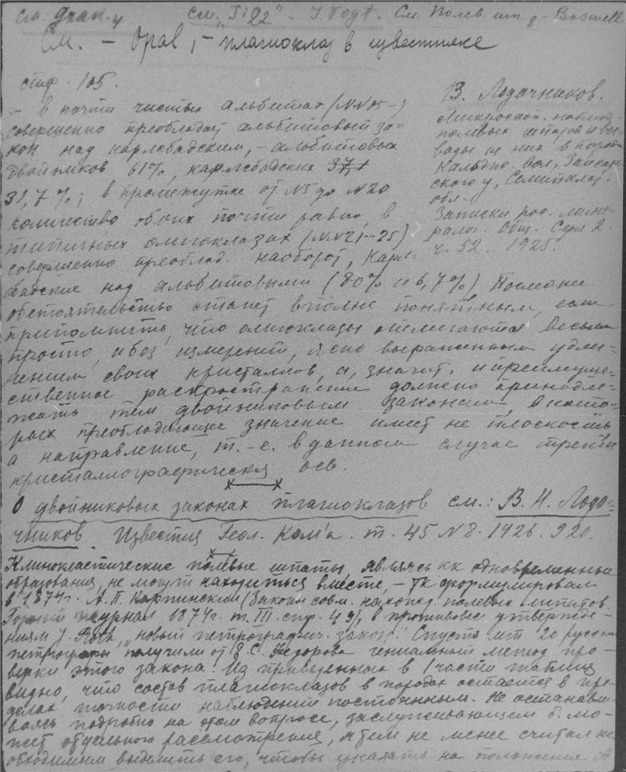 см. "Т. 82" - J. Vogt. См. Полев. шп. у Boswell
См. - Opal, - плагиоклаз в известняке
стр. 105.
- в почти чистых альбитах (NN 05-)
совершенно преобладает альбитовый за-
кон над карлсбадским, - альбитовых
двойников 61%, карлсбадских
31,7%; в промежутке от №5 до №20
количество обоих почти равно, в
типичных олигоклазах (NN 21-25)
совершенно преоблад. наоборот, карлс-
бадские над альбитовыми (80% и 6,7%) Последнее
обстоятельство станет вполне понятным, если
припомнить, что олигоклазы отличаются весьма
просто, и без измерений, ясно выраженным удли-
нением своих кристаллов, а, значит, и преимуще-
ственное распространение должно принадле-
жать тем двойниковым законам, в кото-
рых преобладающее значение имеет не плоскость
а направление, т.-е. в данном случае третья
кристаллографическая ось.
В. Лодочников.
Микроскоп. наблюд.
полевых шпатов и вы-
воды из них в пород.
Кальджир. вол., Зайсан-
ского у., Семипалат.
обл.
Записки рос. мине-
ралог. общ. Серя 2
ч. 52. 1925.
О двойниковых законах плагиоклазов см.: В. Н. Лодо-
чников. Известия Геол. Ком'а. т. 45 № 1926. 920.
Клинокластические полевые шпаты, являясь кк одновременные
образования, не могут находиться вместе, - тк формулировал
в 1874г. А. П. Карпинский (Законы совм. нахожд. полевых шпатов.
Горный журнал 1874г. т. III стр. 49), в противовес утвержде-
ниям "новый петрографич. закон". Спустя лет 20 русские
петрографы получили от Е. С. Федорова гениальный метод про-
верки этого закона. Из приведенных в 1 части таблиц
видно, что состав плагиоклазов в породах остается в пре-
делах точности наблюдений постоянным. Не останавли-
ваясь подробно на этом вопросе, заслуживающем б. мо-
жет отдельного рассмотрения, я тем не менее считал не-
обходимым выделить его, чтобы указать на положение А